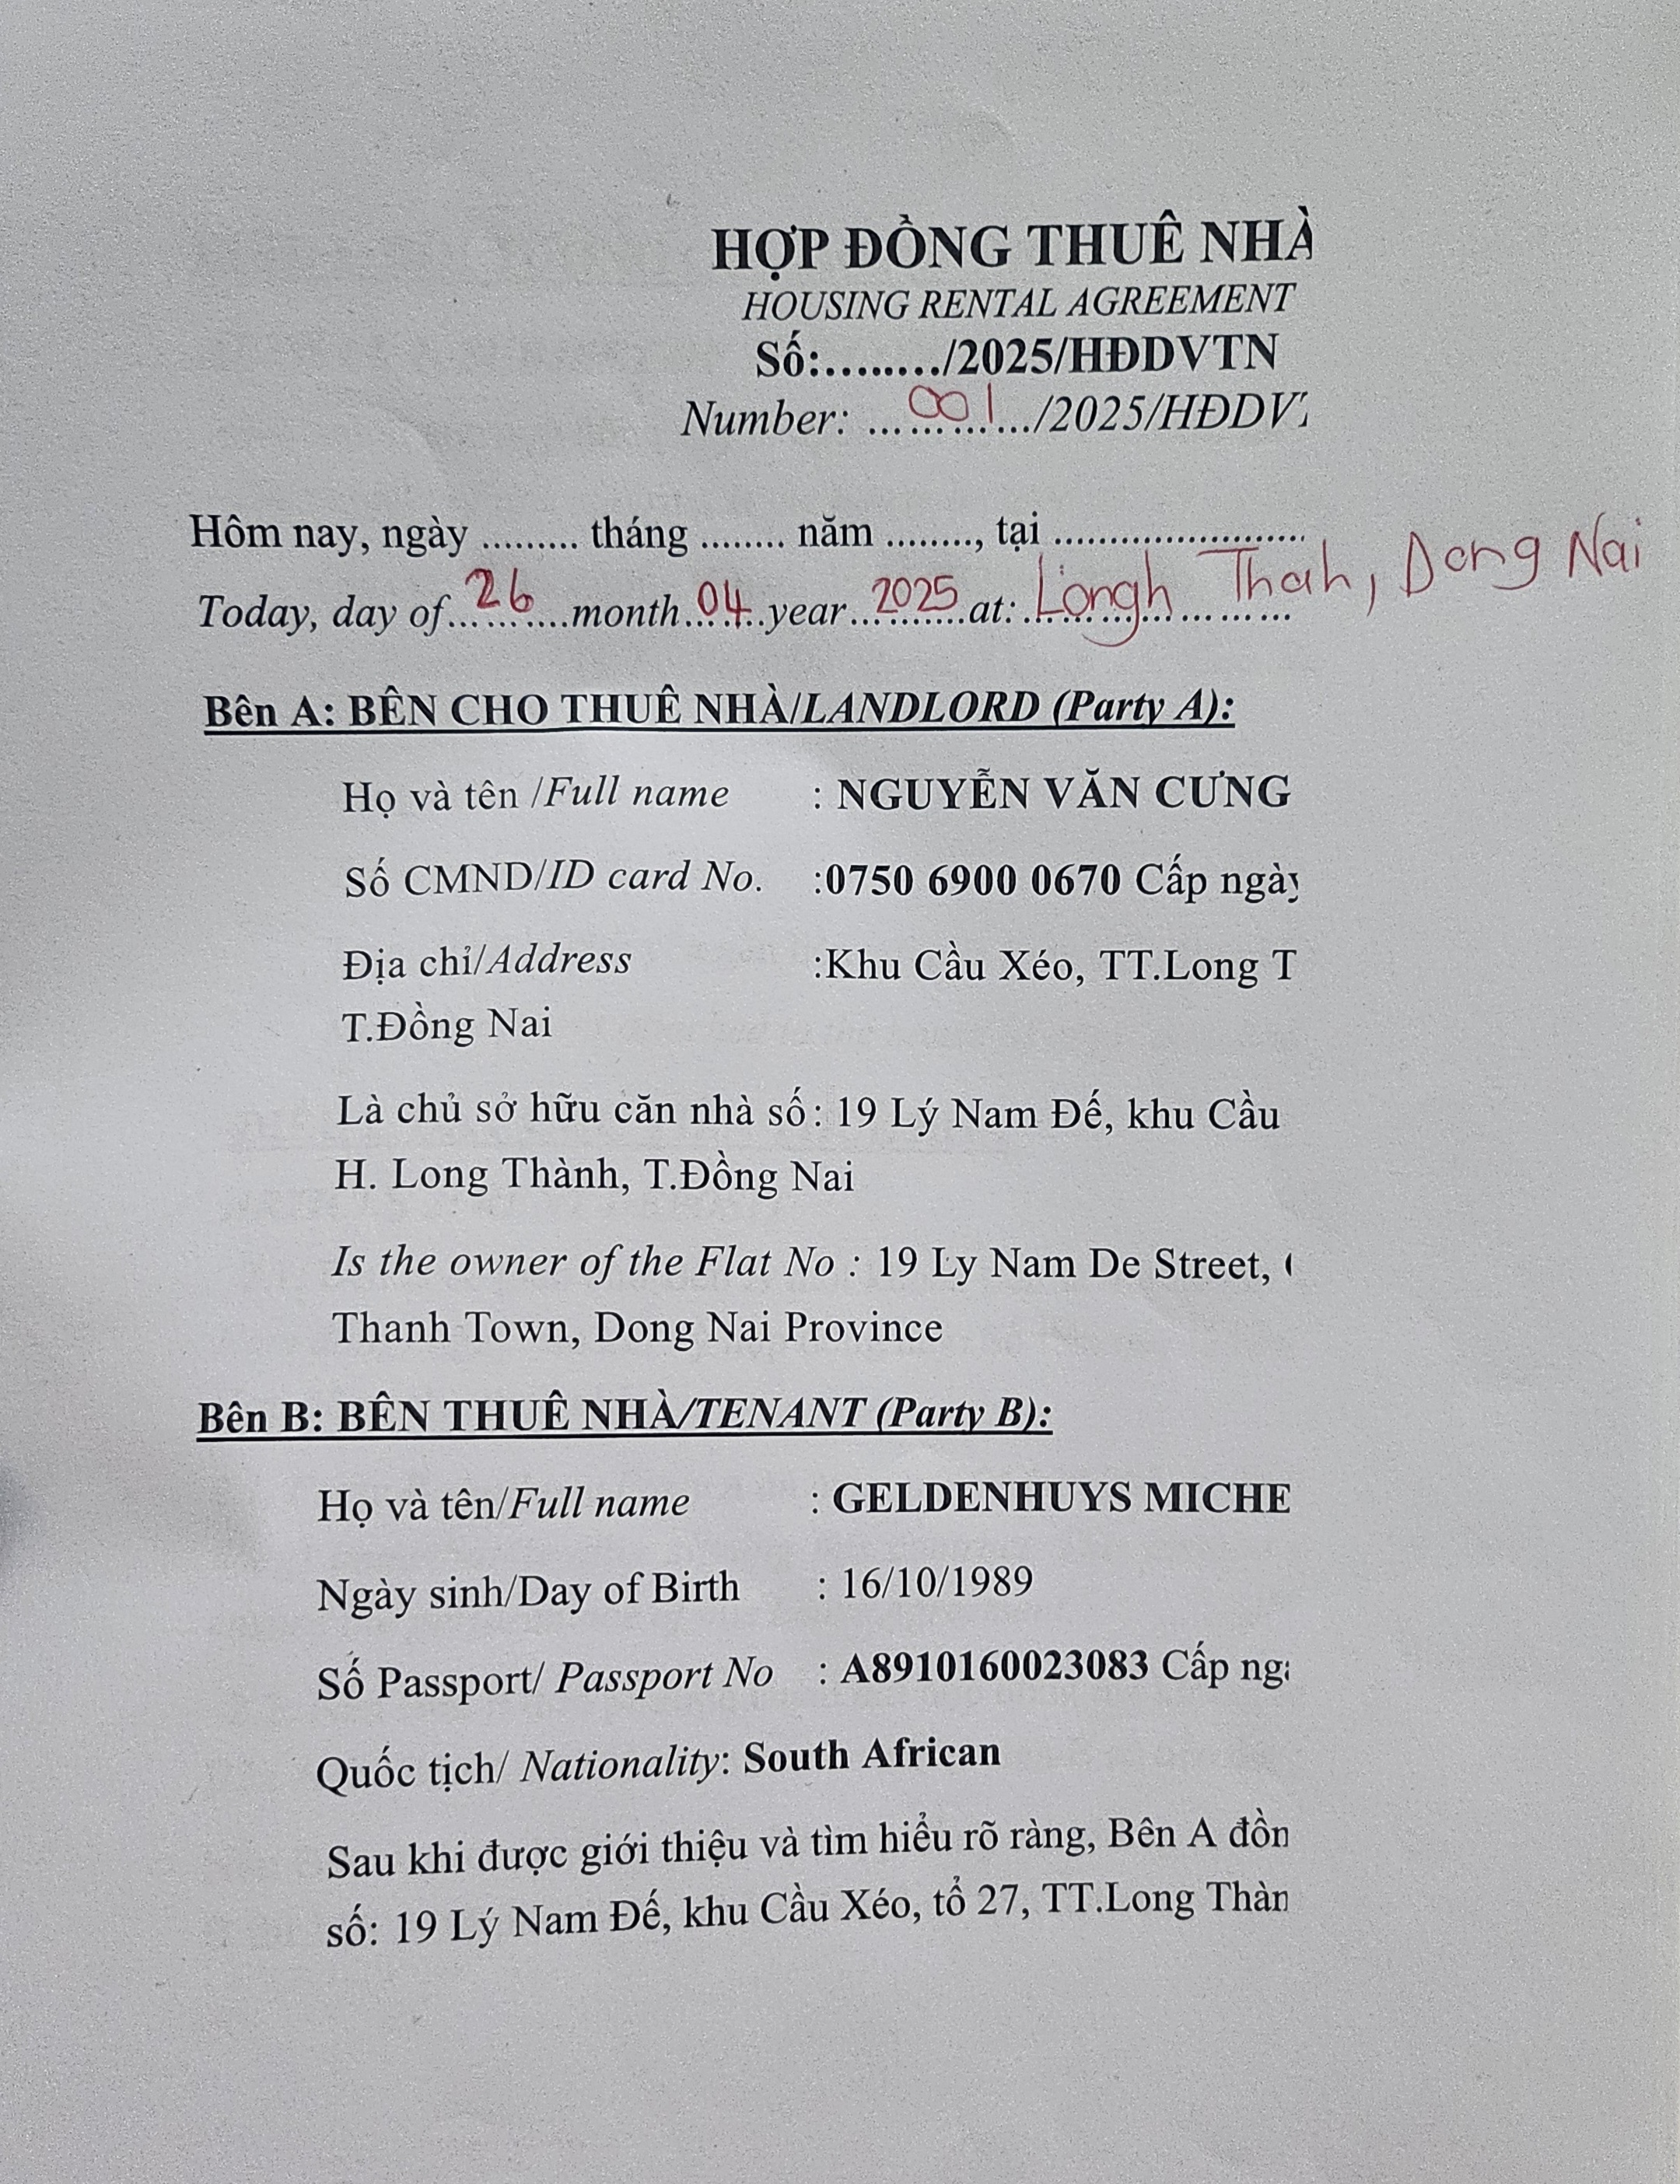 HỢP ĐỒNG THUÊ NHÀ
HOUSING RENTAL AGREEMENT
Số:......…/2025/HĐDVTN
Number: …001…/2025/HĐDV
Hôm nay, ngày ......... tháng ........ năm ........, tại ........................
Today, day of…26…month…04…year…2025…at: Longh Thah, Dong Nai
Bên A: BÊN CHO THUÊ NHÀ/LANDLORD (Party A):
Họ và tên /Full name : NGUYỄN VĂN CƯNG
Số CMND/ID card No. :0750 6900 0670 Cấp ngày
Địa chỉ/Address :Khu Cầu Xéo, TT.Long T
T.Đồng Nai
Là chủ sở hữu căn nhà số: 19 Lý Nam Đế, khu Cầu
H. Long Thành, T.Đồng Nai
Is the owner of the Flat No : 19 Ly Nam De Street,
Thanh Town, Dong Nai Province
Bên B: BÊN THUÊ NHÀ/TENANT (Party B):
Họ và tên/Full name : GELDENHUYS MICHE
Ngày sinh/Day of Birth : 16/10/1989
Số Passport/ Passport No : A8910160023083 Cấp ng
Quốc tịch/ Nationality: South African
Sau khi được giới thiệu và tìm hiểu rõ ràng, Bên A đồn
số: 19 Lý Nam Đế, khu Cầu Xéo, tổ 27, TT.Long Thàn